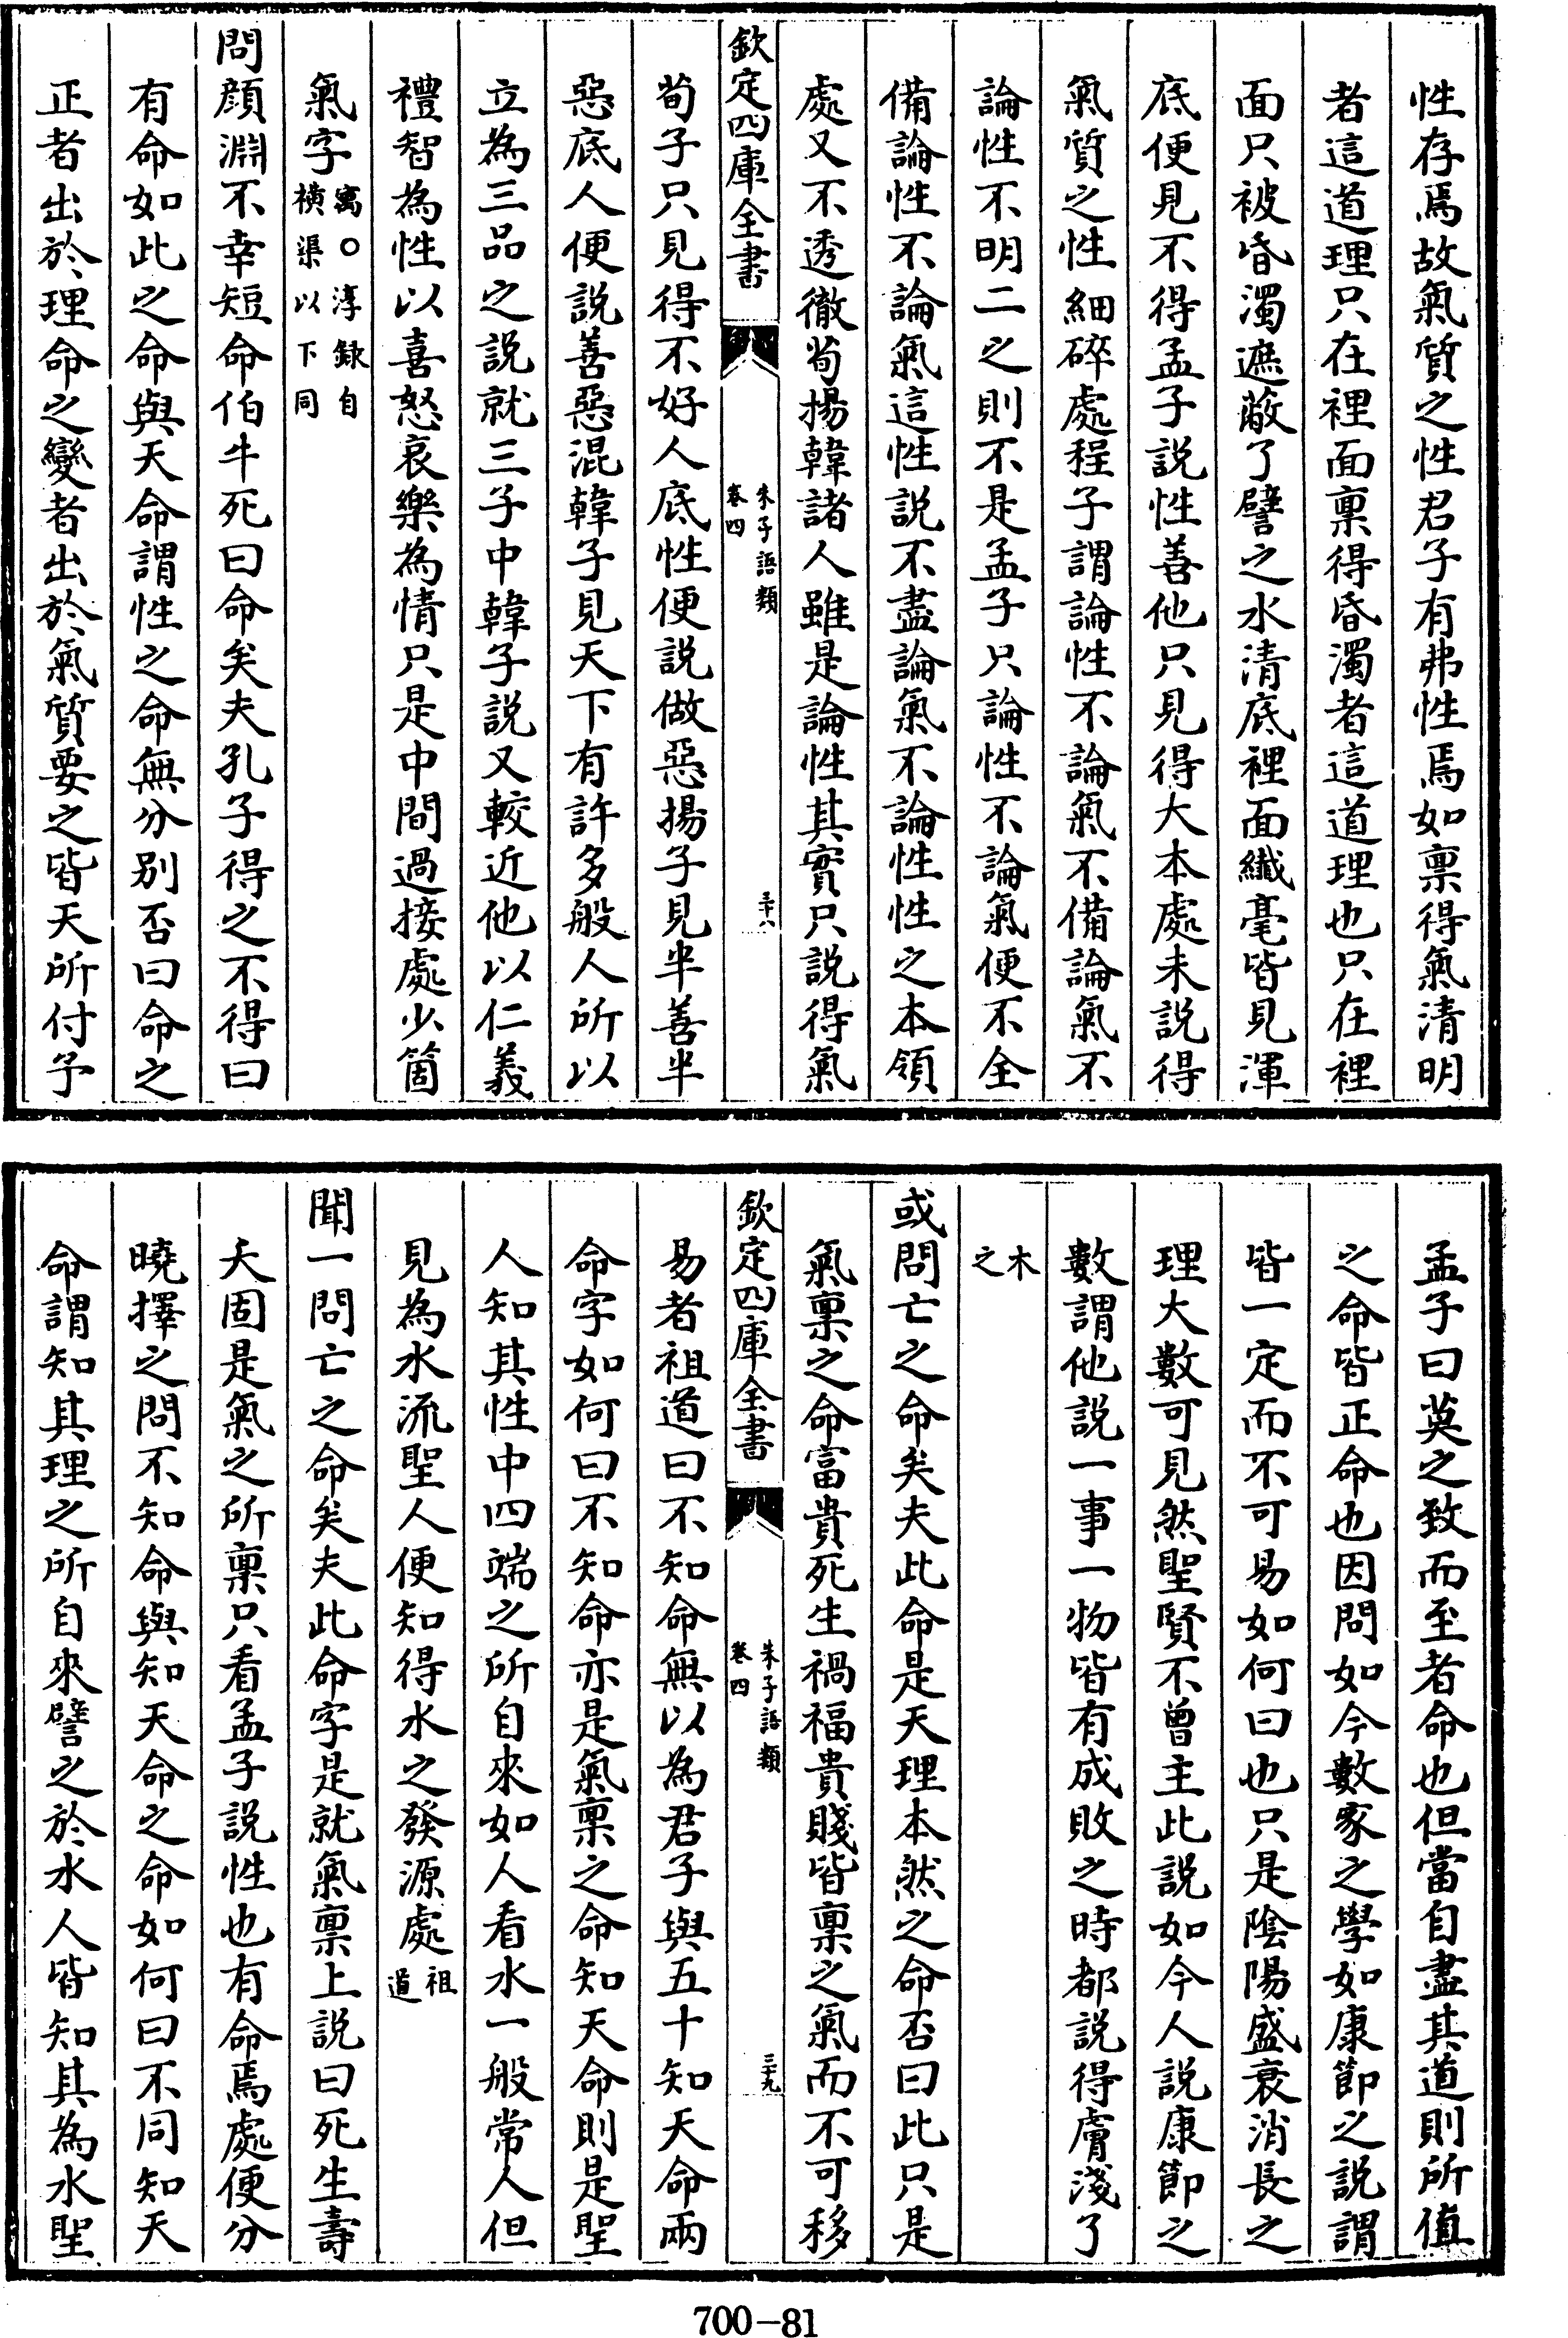 性存焉故氣質之性君子有弗性焉如稟得氣清明
者這道理只在裡面稟得昏濁者這道理也只在裡
面只被昏濁遮蔽了譬之水清底裡面纖毫皆見渾
底便見不得孟子説性善他只見得大本處未説得
氣質之性細碎處程子謂論性不論氣不備論氣不
論性不明二之則不是孟子只論性不論氣便不全
備論性不論氣這性説不盡論氣不論性性之本領
處又不透徹荀揚韓諸人雖是論性其實只説得氣
欽定四庫全書
朱子語類
卷四
三十八
荀子只見得不好人底性便説做惡揚子見半善半
惡底人便説善惡混韓子見天下有許多般人所以
立為三品之説就三子中韓子説又較近他以仁義
禮智為性以喜怒哀樂為情只是中間過接處少箇
氣字㝢○淳録自
橫渠以下同
問顔淵不幸短命伯牛死曰命矣夫孔子得之不得曰
有命如此之命與天命謂性之命無分别否曰命之
正者出於理命之變者出於氣質要之皆天所付予
孟子曰莫之致而至者命也但當自盡其道則所值
之命皆正命也因問如今數家之學如康節之説謂
皆一定而不可易如何曰也只是陰陽盛衰消長之
理大數可見然聖賢不曾主此説如今人説康節之
數謂他説一事一物皆有成敗之時都説得膚淺了
木
之
或問亡之命矣夫此命是天理本然之命否曰此只是
氣稟之命富貴死生禍福貴賤皆稟之氣而不可移
欽定四庫全書
朱子語類
卷四
三十九
易者祖道曰不知命無以為君子與五十知天命兩
命字如何曰不知命亦是氣稟之命知天命則是聖
人知其性中四端之所自來如人看水一般常人但
見為水流聖人便知得水之發源處祖
道
聞一問亡之命矣夫此命字是就氣稟上説曰死生壽
夭固是氣之所稟只看孟子説性也有命焉處便分
曉擇之問不知命與知天命之命如何曰不同知天
命謂知其理之所自來譬之於水人皆知其為水聖
700-81